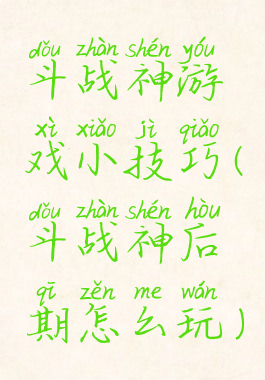 dǒu zhàn shén yóu
斗战神游
xì xiǎo jì qiǎo
戏小技巧(
dǒu zhàn shén hòu
斗战神后
qī zěn me wán
期怎么玩)